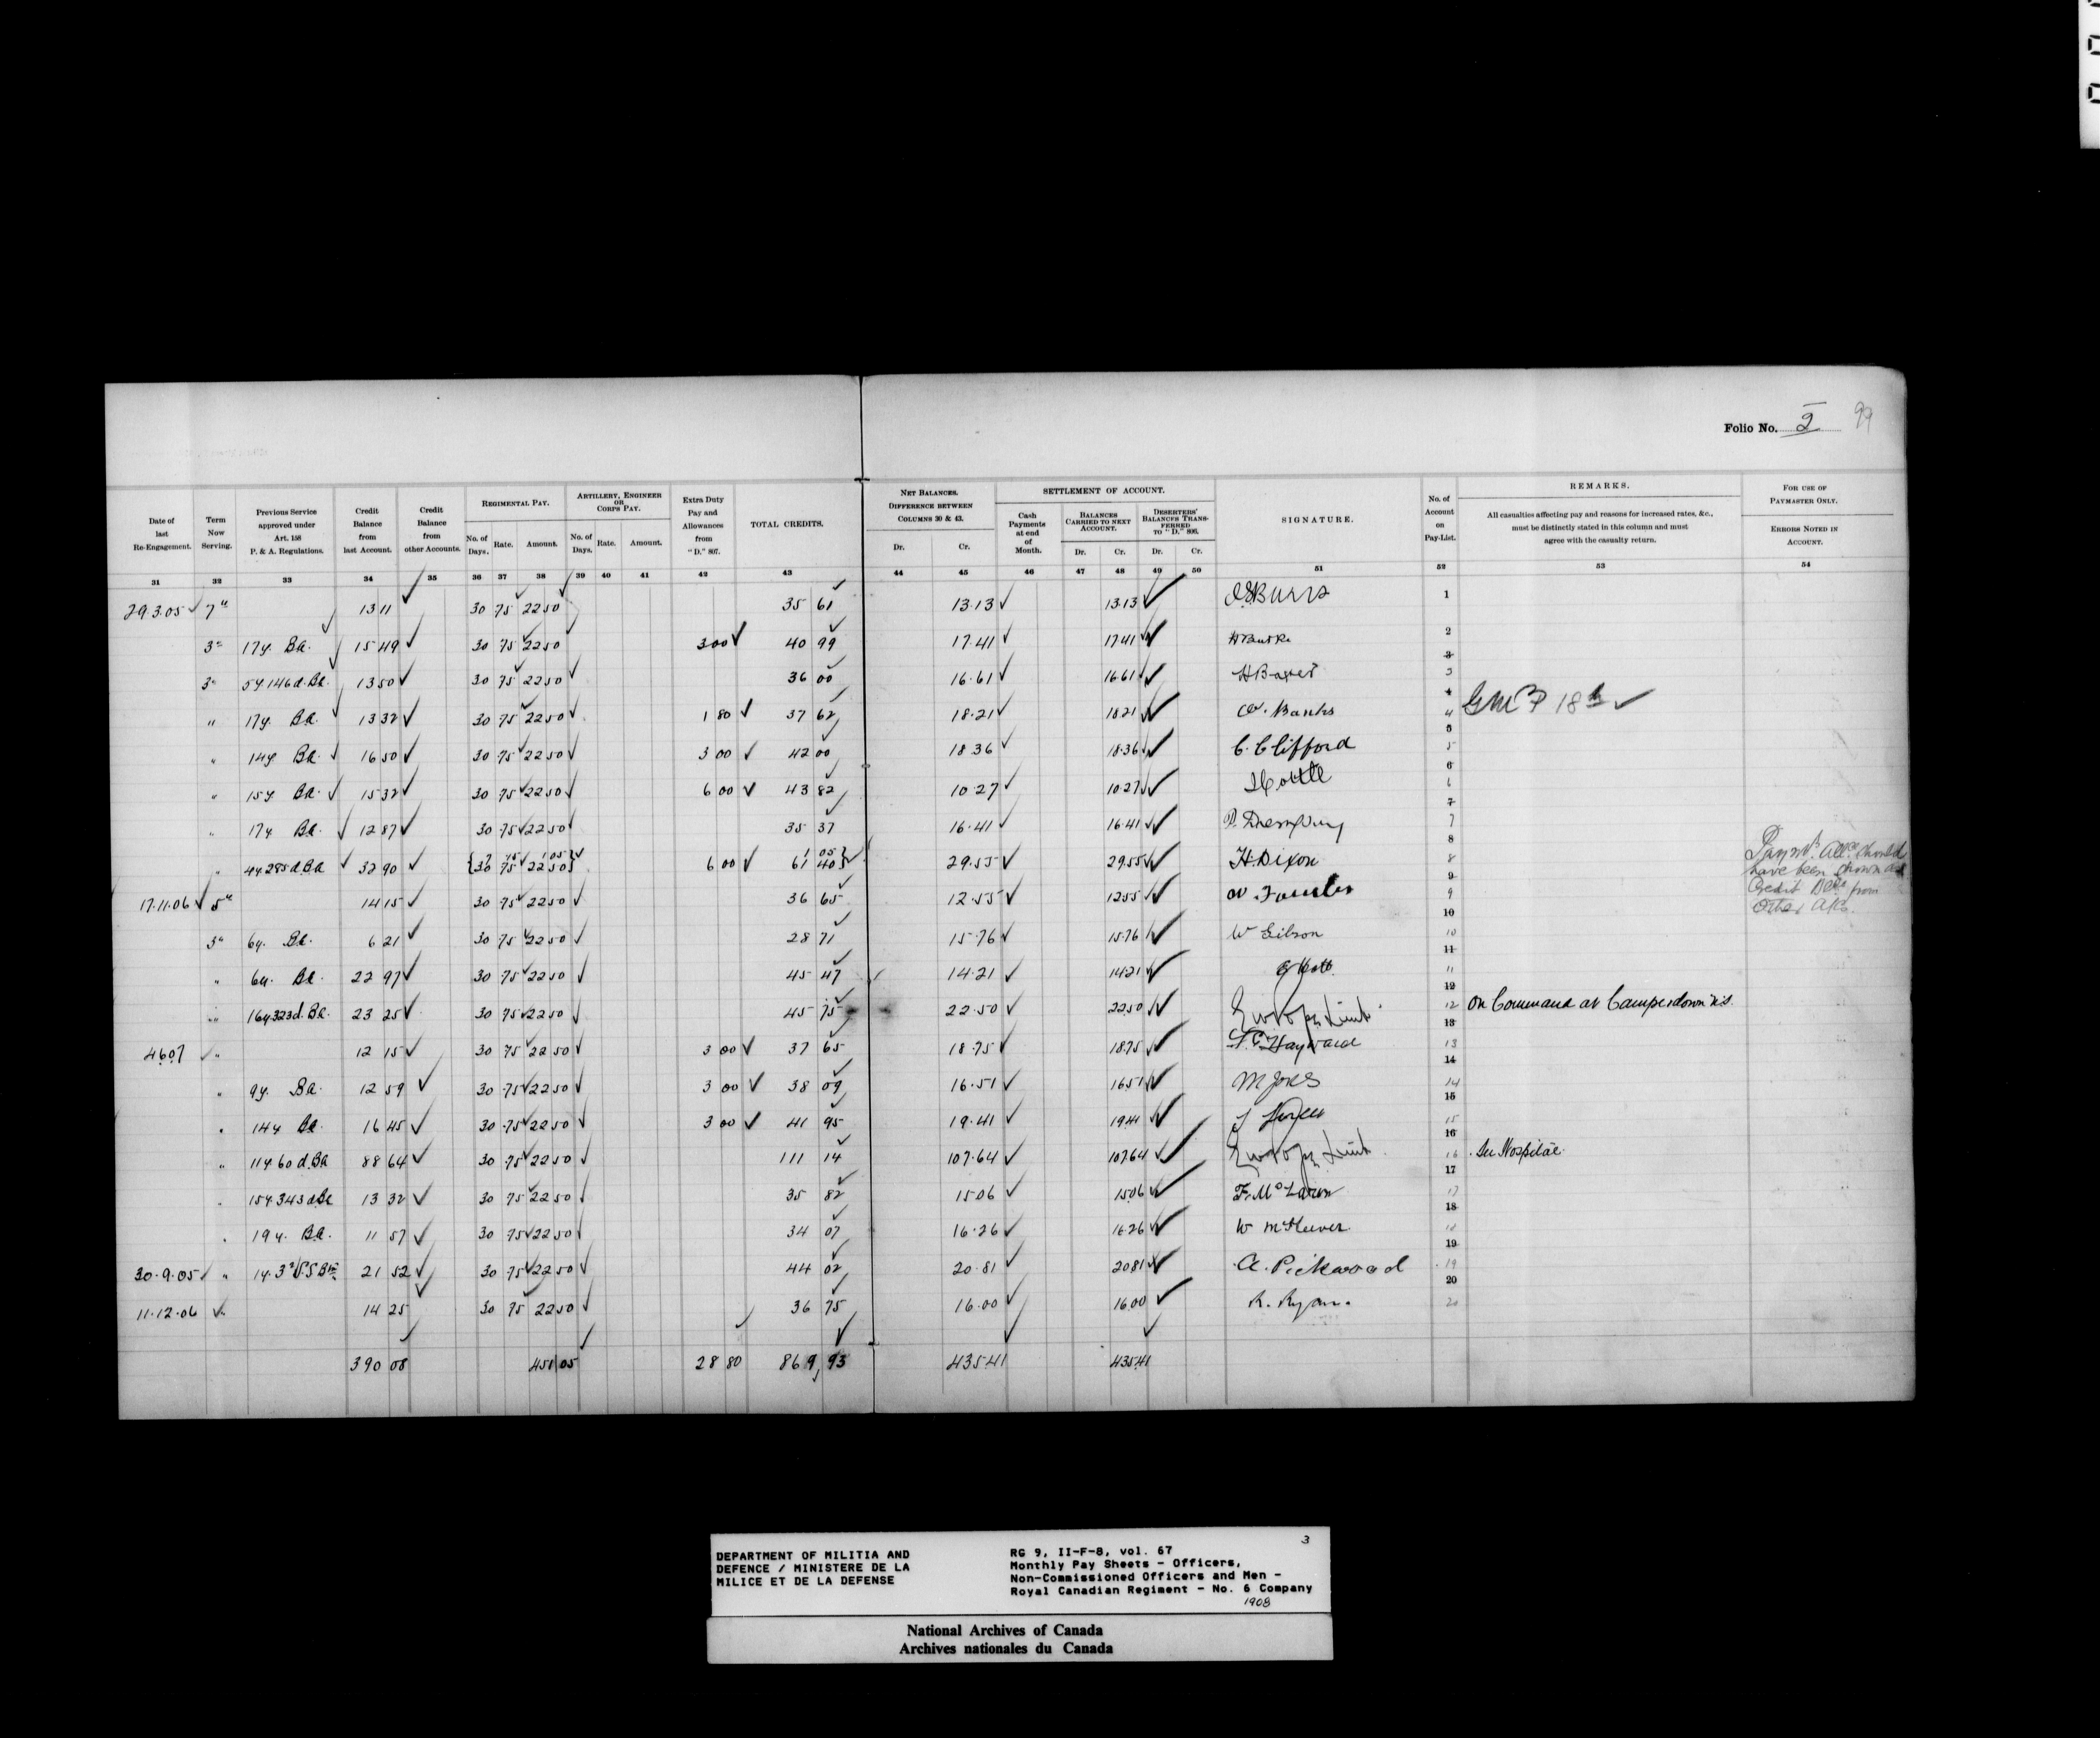 Folio No. 2 99
Date of last Re-Engagement.
Term Now Serving.
Previous Service approved under Art. 158 P. & A. Regulations.
Credit Balance from last Account.
Credit Balance from other Accounts.
REGIMENTAL PAY.
No. of Days. Rate. Amount.
ARTILLERY, ENGINEER OR CORPS PAY.
No. of Days. Rate. Amount.
Extra Duty Pay and Allowances from "D." 807.
TOTAL CREDITS.
NET BALANCES. DIFFERENCE BETWEEN COLUMNS 30 & 43.
Dr. Cr.
SETTLEMENT OF ACCOUNT.
Cash Payments at end of Month.
BALANCES CARRIED TO NEXT ACCOUNT.
Dr. Cr.
DESERTERS' BALANCES TRANSFERRED TO "D." 806.
Dr. Cr.
SIGNATURE.
No. of Account on Pay-List.
REMARKS.
All casualties affecting pay and reasons for increased rates, &c., must be distinctly stated in this column and must agree with the casualty return.
FOR USE OF PAYMASTER ONLY.
ERRORS NOTED IN ACCOUNT.
31 32 33 34 35 36 37 38 39 40 41 42 43 44 45 46 47 48 49 50 51 52 53 54
29.3.05 7" 13 11 30 75 22 50 35 61 13.13 13.13 Burns 1
3" 17y. Ba. 15 49 30 75 22 50 3 00 40 99 17.41 17 41 H Burke 2
3" 5y.146d.Ba. 13 50 30 75 22 50 36 00 16.61 16 61 H Baxter 3
" 17y. Ba. 13 32 30 75 22 50 1 80 37 62 18.21 18 21 W. Banks 4 18th
" 14y Ba. 16 50 30 75 22 50 3 00 42 00 18 36 18.36 C. Clifford 5
" 15y Ba. 15 32 30 75 22 50 6 00 43 82 10.27 10.27 6
" 17y Ba. 12 87 30 75 22 50 35 37 16.41 16.41 7
" 4y.285d Ba 32 90 {7 15 1 05} {30 75 22 50} 6 00 1 05 61 40 29.55 29.55 H. Dixon 8
17.11.06 5" 14 15 30 75 22 50 36 65 12.55 12 55 W. Fowler 9
3" 6y. Ba. 6 21 30 75 22 50 28 71 15.76 15.76 W Gibson 10
" 6y. Ba. 22 97 30 75 22 50 45 47 14.21 14.21 11
" 16y.323d.Ba. 23 25 30 75 22 50 45 75 22.50 22.50 12 On Command at Camperdown N.S.
4.6.07 " 12 15 30 75 22 50 3 00 37 65 18.75 18.75 Hayward 13
" 9y. Ba. 12 59 30 75 22 50 3 00 38 09 16.51 16 51 M Jones 14
" 14y Ba. 16 45 30 75 22 50 3 00 41 95 19.41 19.41 15
" 11y.60d.Ba 88 64 30 75 22 50 111 14 107.64 107.64 16 In Hospital
" 15y 343d Ba 13 32 30 75 22 50 35 82 15 06 15.06 F. McLaren 17
" 19y. Ba. 11 57 30 75 22 50 34 07 16.26 16.26 W McKeever 18
30.9.05 " 21 52 30 75 22 50 44 02 20.81 20 81 A. Pickwood 19
11.12.06 " 14 25 30 75 22 50 36 75 16.00 16.00 R. Ryan. 20
390 08 451 05 28 80 869 93 435.41 435.41
Allce should
have been shown as
Credit Balce from
Other A/cs.
DEPARTMENT OF MILITIA AND
DEFENCE / MINISTERE DE LA
MILICE ET DE LA DEFENSE
3
RG 9, II-F-8, vol. 67
Monthly Pay Sheets - Officers,
Non-Commissioned Officers and Men -
Royal Canadian Regiment - No. 6 Company
1908
National Archives of Canada
Archives nationales du Canada